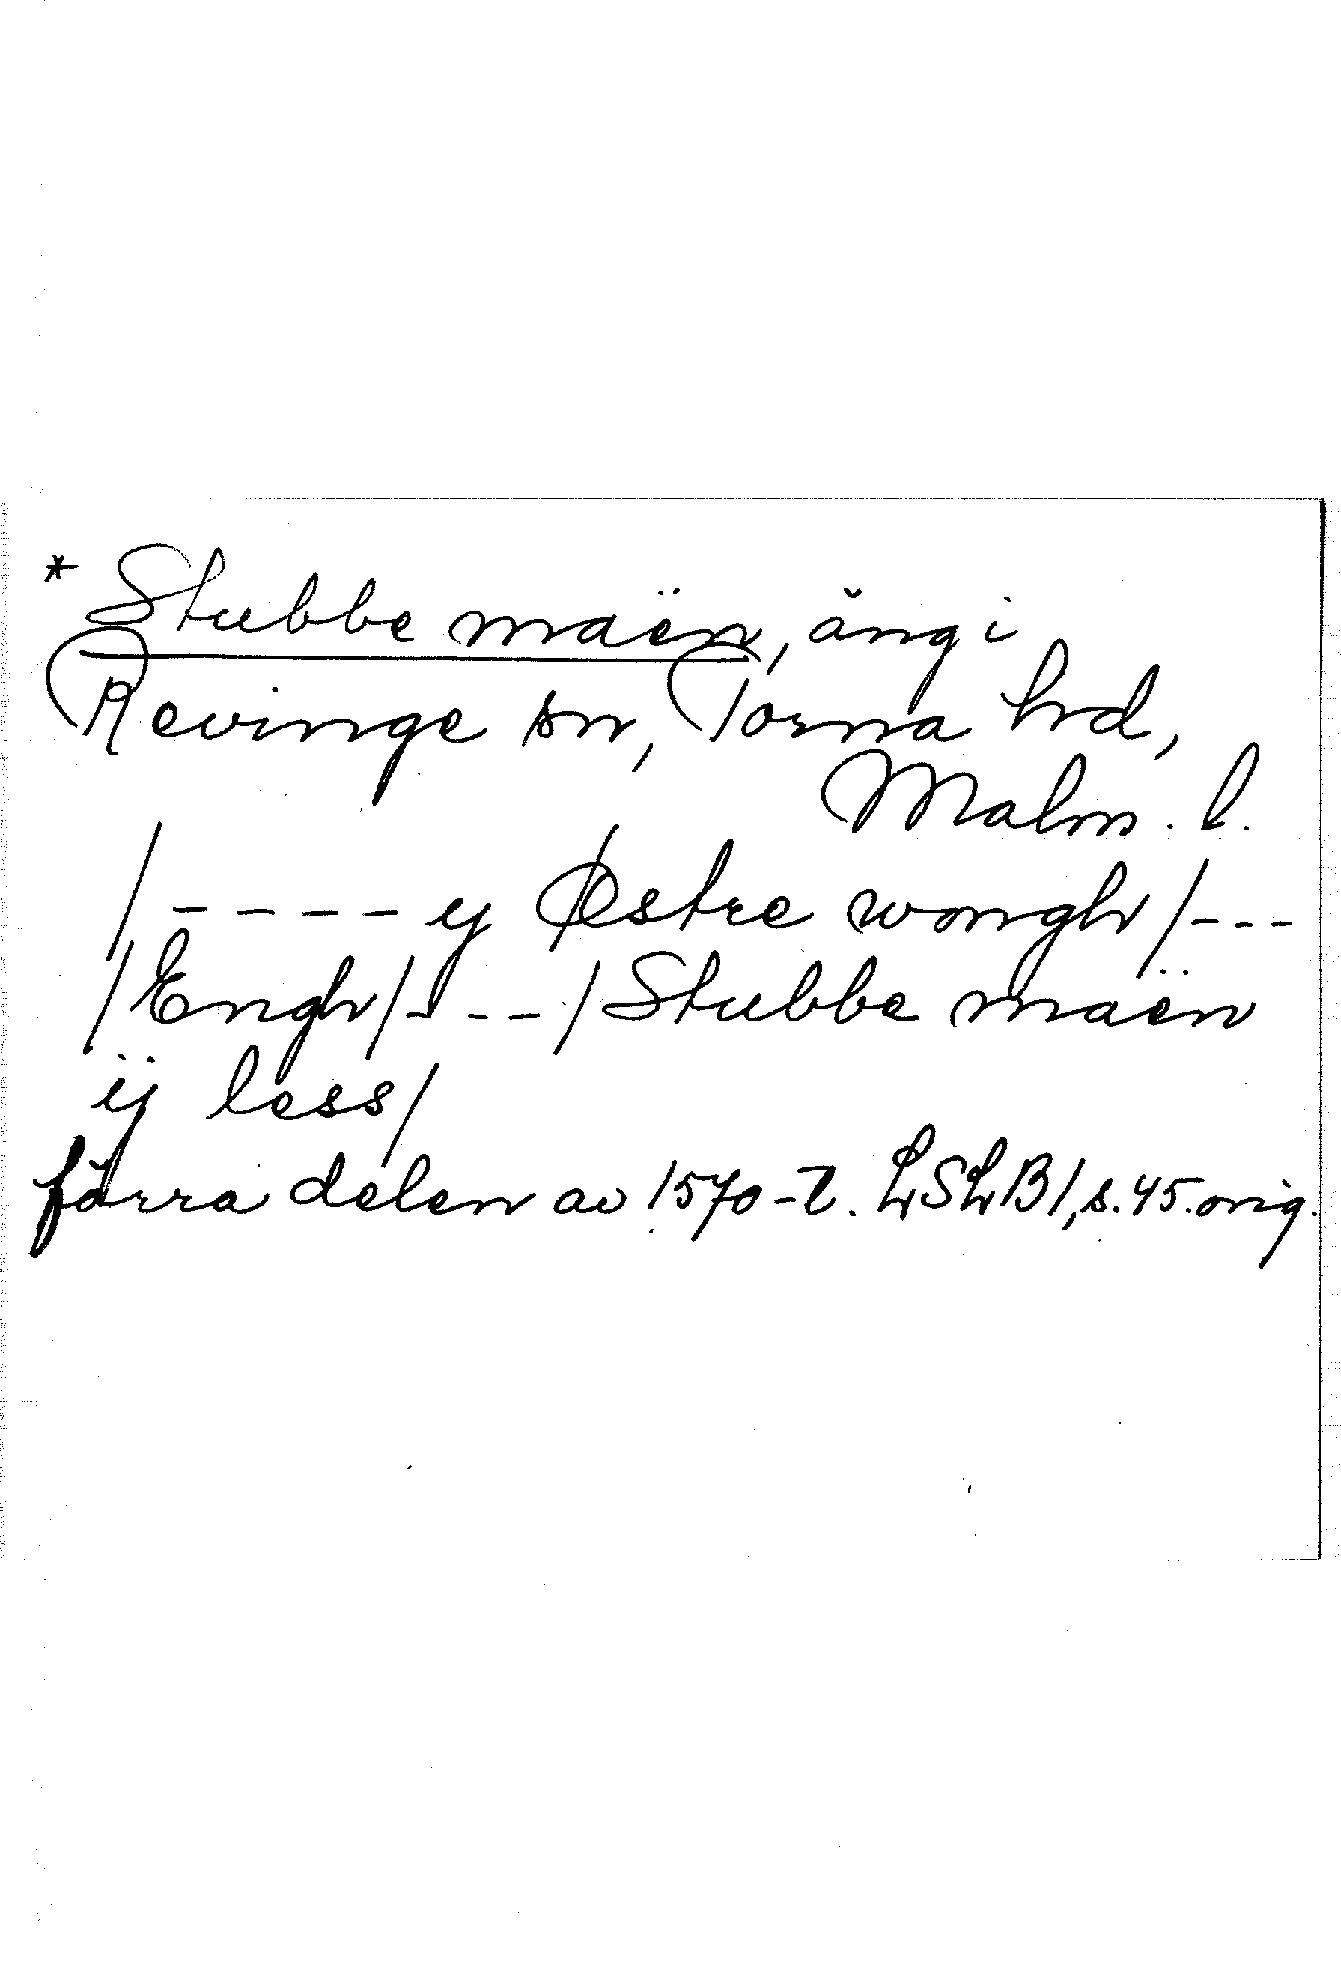 * Stubbe maën, äng i
Revinge sn, Torna hd,
Malm. l.
/ - - - - ij Østre wongh / - - -
/ Engh / - - - / Stubbe maën
ij less /
förra delen av 1570-t. LSLB1, s. 45. orig.